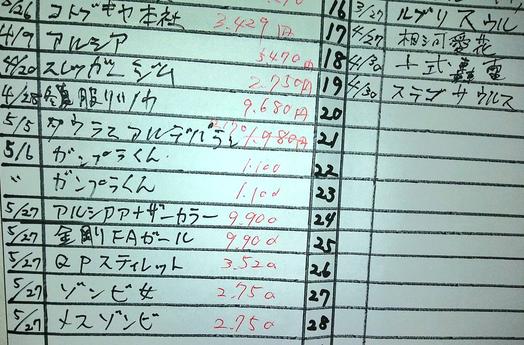 2/26 コトブキヤ本社 3.429円 16 3/27 ルブリスウル
4/9 アルシア 3470円 17 4/27 相河愛花
4/20 スレッガーミジム 2.750円 18 4/30 十式 雷電
4/28 服リリカ 9.680円 19 4/30 ステゴサウルス
5/5 タウラスアルデバラン 1.980円 20
5/6 ガンプラくん 1.100 21
〃 ガンプラくん 1.100 22
23
5/27 アルシアアナザーカラー 9.900 24
5/27 金剛FAガール 9.900 25
5/27 QPスティレット 3.520 26
5/27 ゾンビ女 2.750 27
5/27 メスゾンビ 2.750 28